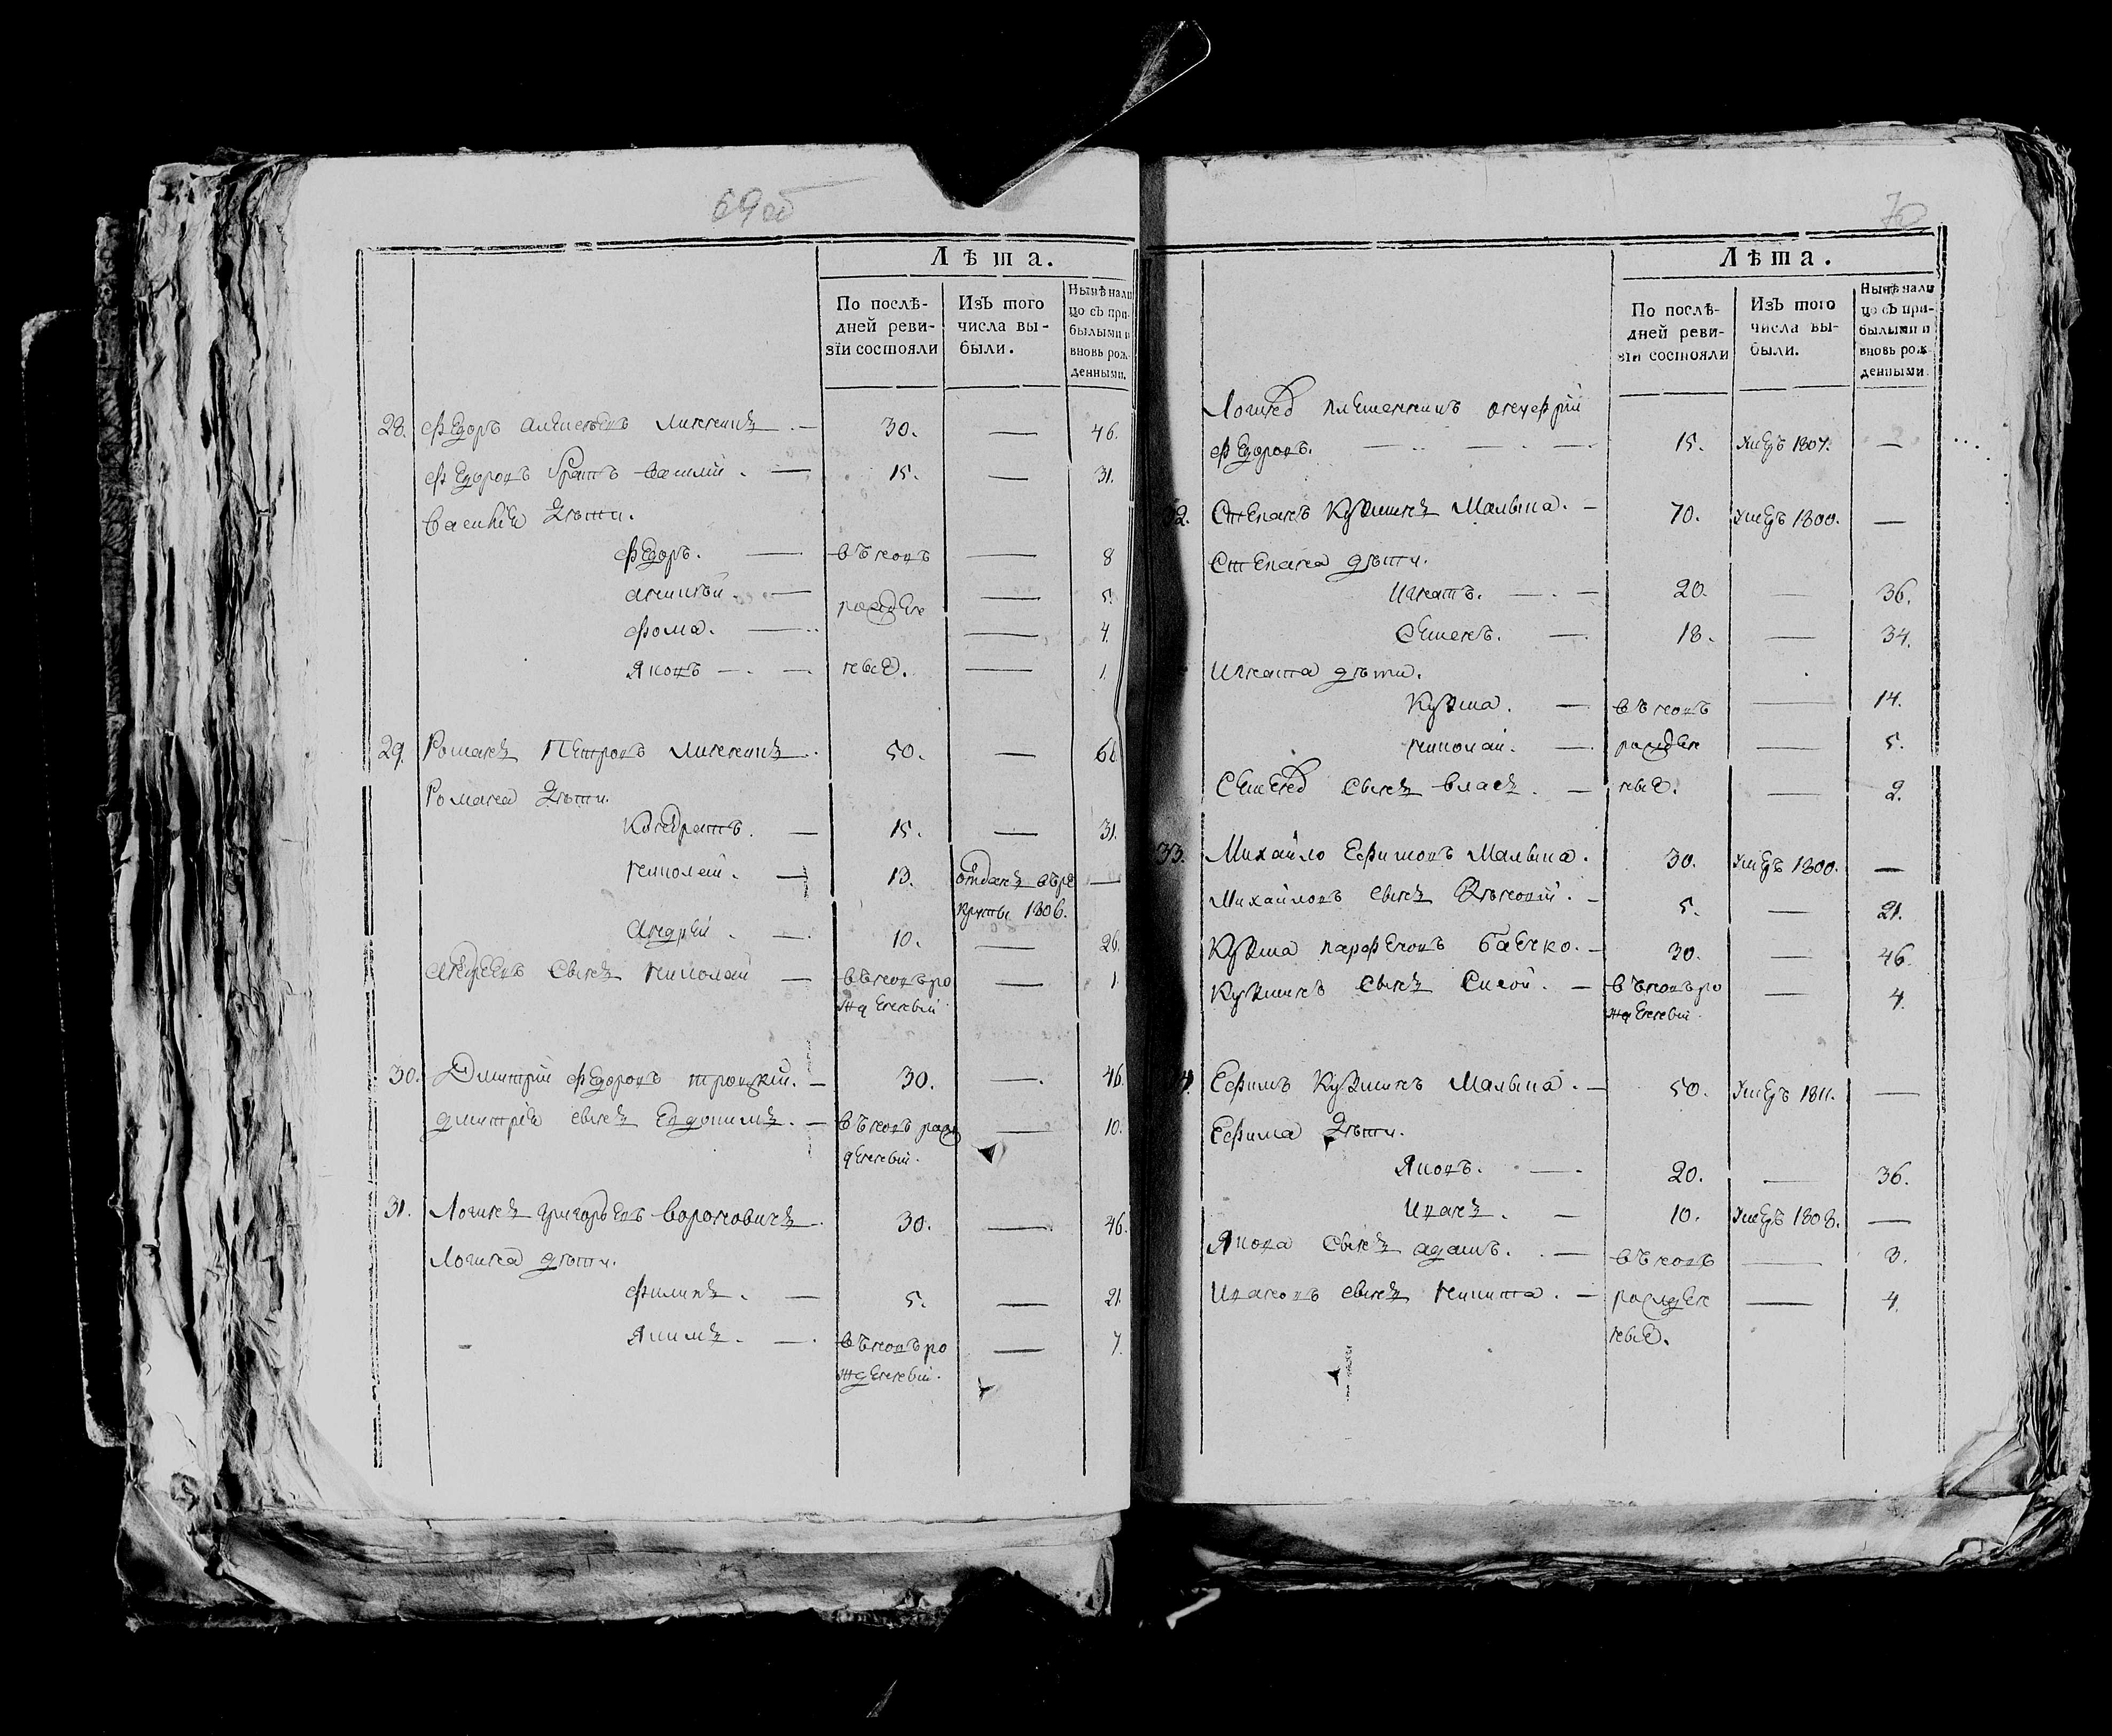 69об
Лѣта.
По послѣ-
дней реви-
зїи состояли
Изъ того
числа вы-
были.
Нынѣ нали
цо съ при-
былыми и
вновь рож-
денными.
28. Федоръ Алексѣевъ — 30. — 46.
Федоровъ братъ Василий. — 15. — 31.
Василїя дѣти.
Федоръ. — въновъ — 8
— 5.
Фома. — рожден — 4.
Яковъ — ные. — 1.
29. Романъ Петровъ 50. —
Романа дѣти.
Кондратъ. — 15. — 31.
Николай. — 13. отданъ в ре —
круты 1806.
Андрей. — 10. — 26.
Андреевъ сынъ Николай — въновъ ро — 1
жденный
30. Дмитрий Федоровъ Троцкїй. — 30. — 46.
Дмитрїя сынъ Евдокимъ. — въновъ рож — 10.
денный.
31. Логинъ Григорьевъ Вороновичъ 30. — 46.
Логина дѣти.
Филипъ. — 5. — 21.
Якимъ. — въновъ ро — 7.
жденный.
70
Лѣта.
По послѣ-
дней реви-
зїи состояли
Изъ того
числа вы-
были.
Нынѣ нали
цо съ при-
былыми и
вновь рож-
денными.
Логина племенникъ
Федоровъ. — 15. умеръ 1807. —
32. Степанъ Кузминъ Малыша. — 70. умеръ 1800. —
Степана дѣти.
Игнатъ. — 20. — 36.
Семенъ. — 18. — 34.
Игната дѣти.
Кузма. — въновъ — 14.
Николай. — рожден — 5.
Семена сынъ Власъ. — ные. — 2.
33. Михайло Ефимовъ Малыша. 30. умеръ 1800. —
Михайловъ сынъ — 5. — 21.
Кузма Парфеновъ — 30. — 46.
Кузминъ сынъ — въновъ ро — 4.
жденный.
Ефимъ Кузминъ Малыша. — 50. умеръ 1811. —
Ефима дѣти.
Яковъ. — 20. — 36.
Иванъ. — 10. умеръ 1808. —
Якова сынъ Адамъ. — въновъ — 3.
Ивановъ сынъ Никита. — рожден — 4.
ные.